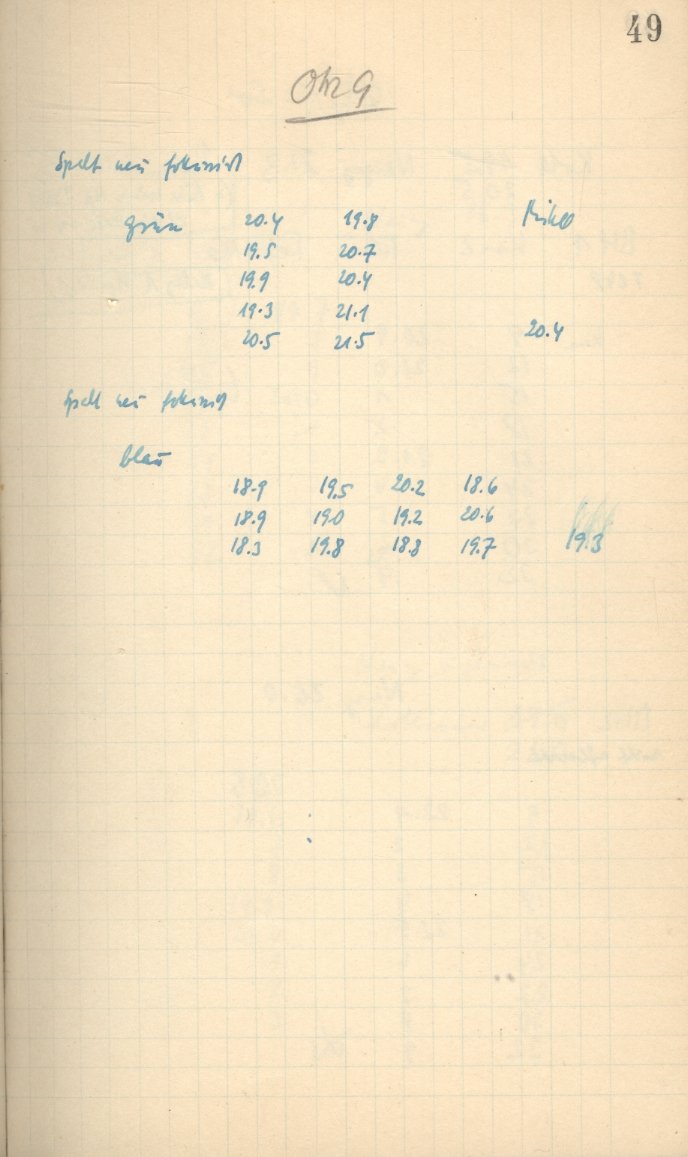 49
Spalt neu fokusiert
grün 20.4 19.8 Mittel
19.5 20.7
19.9 20.4
19.3 21.1
20.5 21.5 20.4
Spalt neu fokusiert
blau
18.9 19.5 20.2 18.6
18.9 19.0 19.2 20.6
18.3 19.8 18.8 19.7 19.3